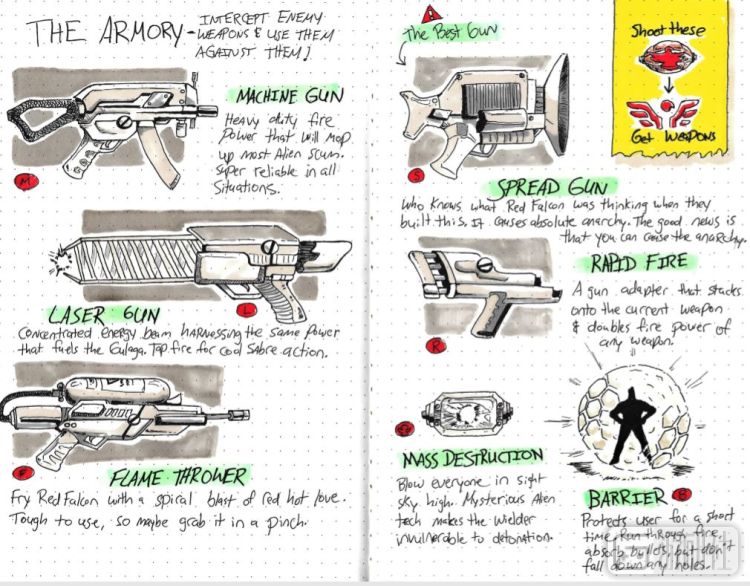 THE ARMORY - INTERCEPT ENEMY
WEAPONS & USE THEM
AGAINST THEM!
MACHINE GUN
Heavy duty fire
Power that will mop
up most Alien scum.
Super reliable in all
Situations.
M
L
LASER GUN
Concentrated energy beam harnessing the same power
that fuels the Gulaga. Tap fire for cool sabre action.
F
FLAME THROWER
Fry Red Falcon with a spiral blast of red hot love.
Tough to use, so maybe grab it in a pinch.
The Best Gun
Shoot these
Get Weapons
S
SPREAD GUN
Who knows what Red Falcon was thinking when they
built this. It causes absolute anarchy. The good news is
that you can cause the anarchy.
R
RAPID FIRE
A gun adapter that stacks
onto the current weapon
& doubles fire power of
any weapon.
MASS DESTRUCTION
Blow everyone in sight
sky high. Mysterious Alien
tech makes the wielder
invulnerable to detonation.
BARRIER B
Protects user for a short
time. Run through fire,
absorb bullets, but don't
fall down any holes.